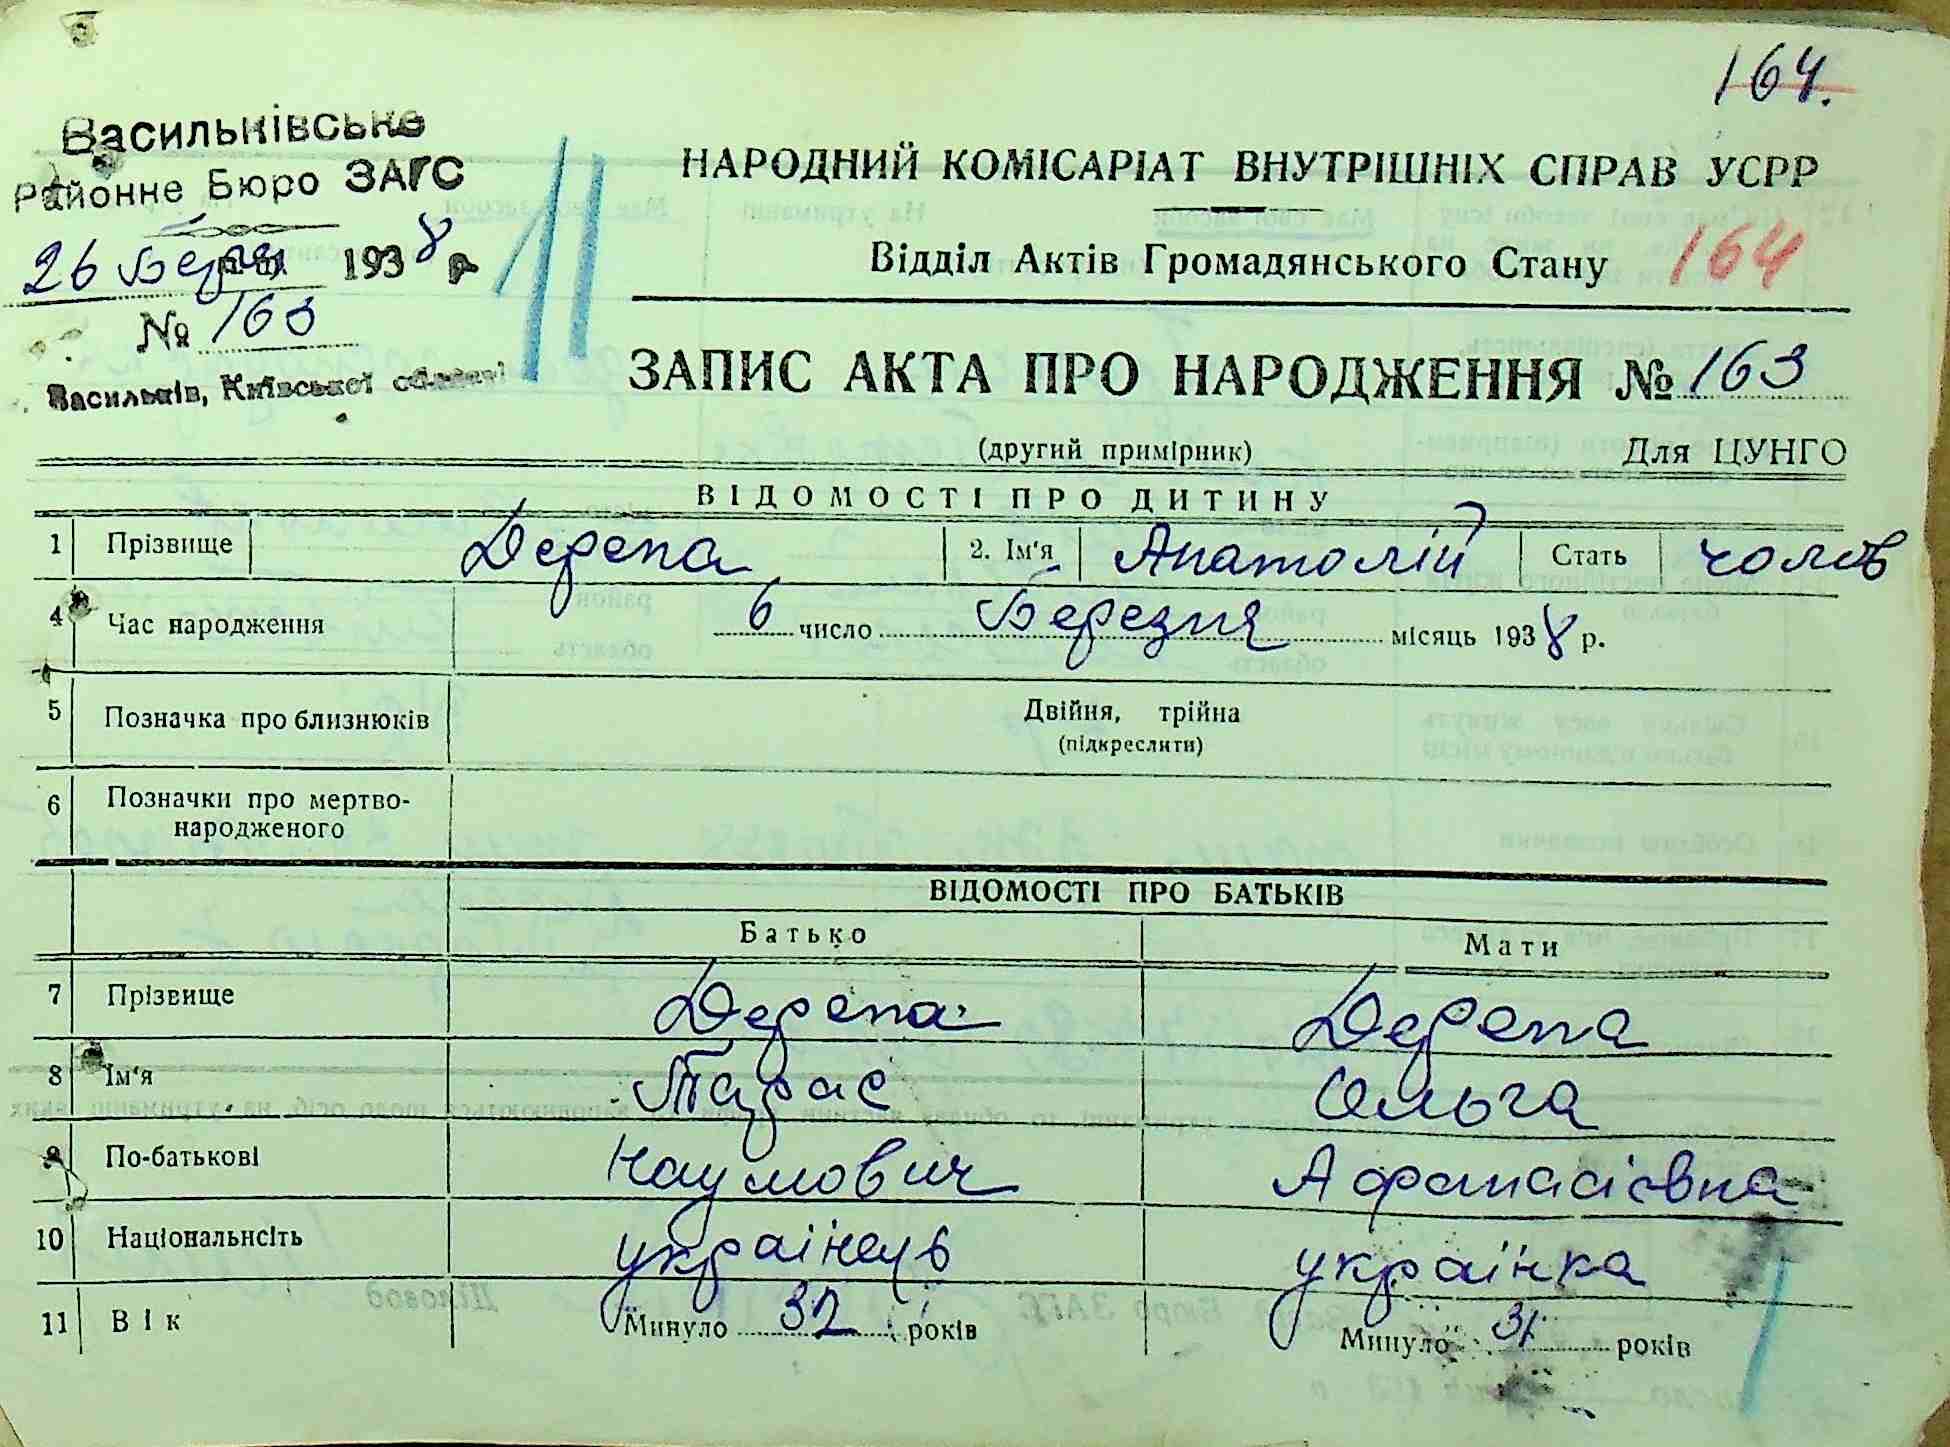 164.
Васильківське
Районне Бюро ЗАГС
26 Берез 1938 р
№ 163
Васильків, Київської області
11
НАРОДНИЙ КОМІСАРІАТ ВНУТРІШНІХ СПРАВ УСРР
Відділ Актів Громадянського Стану 164
ЗАПИС АКТА ПРО НАРОДЖЕННЯ № 163
(другий примірник) Для ЦУНГО
ВІДОМОСТІ ПРО ДИТИНУ
1 Прізвище Дерепа 2. Ім'я Анатолій Стать чолов
4 Час народження 6 число Березня місяць 1938 р.
5 Позначка про близнюків Двійня, трійна
(підкреслити)
6 Позначки про мертво-
народженого
ВІДОМОСТІ ПРО БАТЬКІВ
Батько Мати
7 Прізвище Дерепа Дерепа
8 Ім'я Тарас Ольга
9 По-батькові Наумович Афанасієвна
10 Національнсіть українець українка
11 Вік Минуло 32 років Минуло 31 років